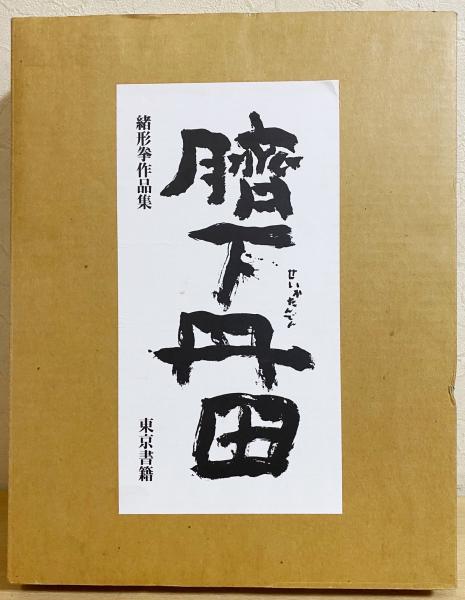 臍下丹田
せいかたんでん
緒形拳作品集
東京書籍